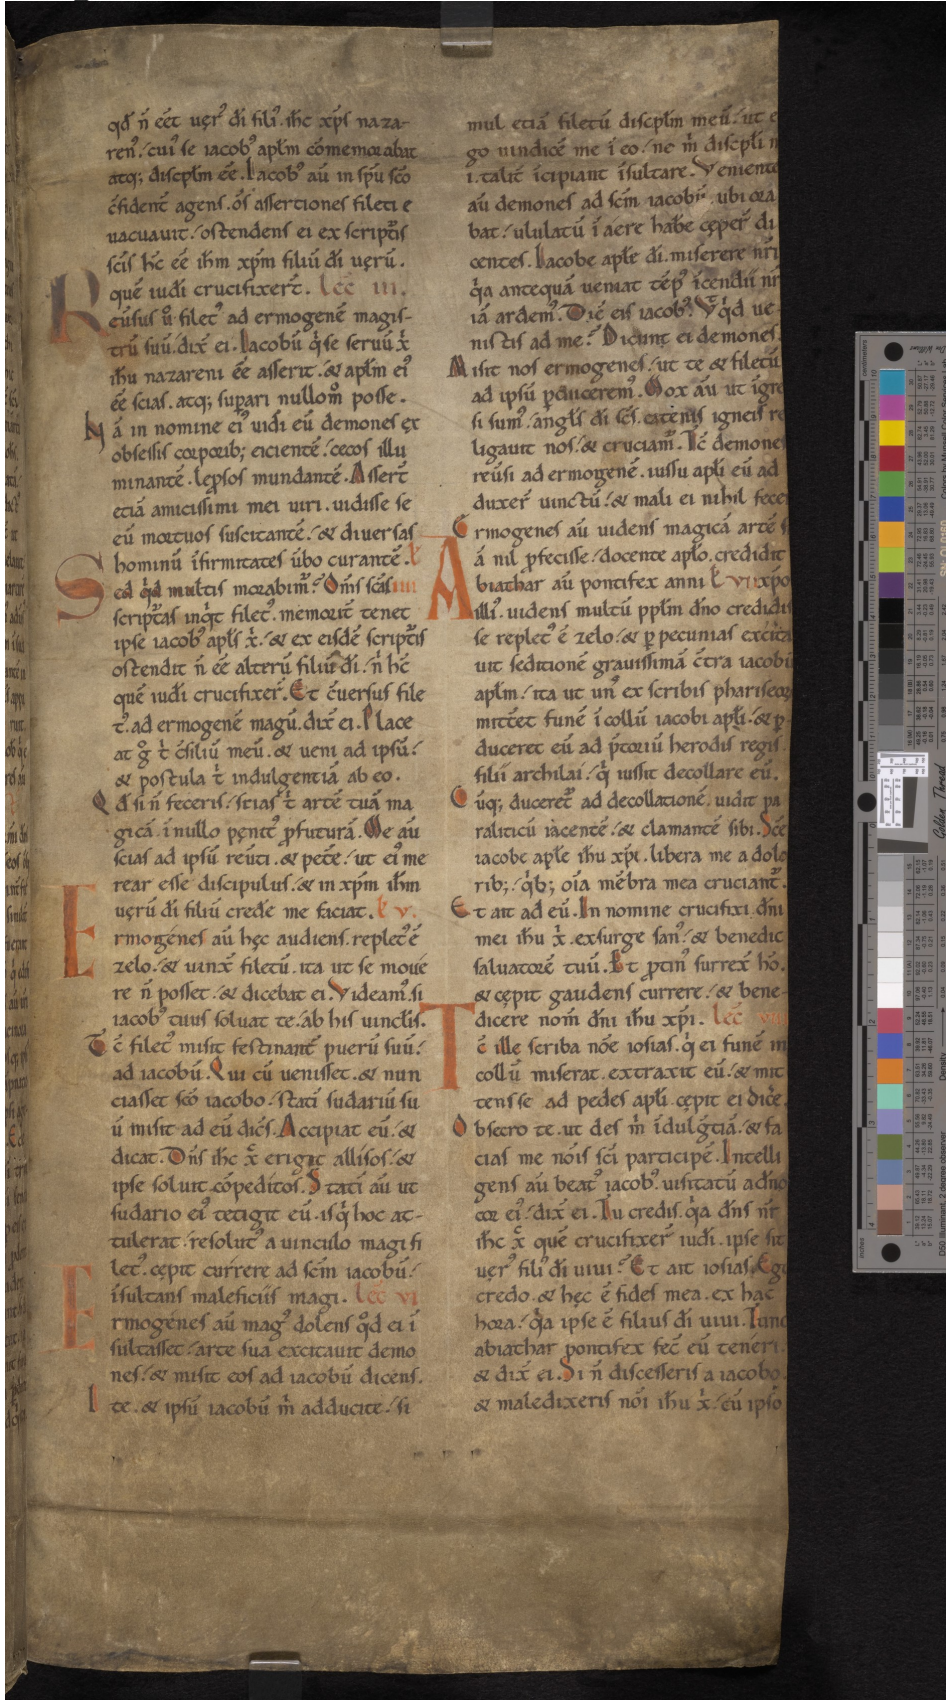 qd̄ n̄ eēt uer᷒ dī fili᷒ ih̄c xp̄s naza-
ren᷒. cui᷒ se iacob᷒ apl̄m cōmemorabat
atq; discpl̄m eē. Iacob᷒ aū in sp̄u sc̄o
c̄fident̄ agens. ōs assertiones fileti e
uacuauit. ostendens ei ex script̄is
sc̄is h̄c eē ih̄m xp̄m filiū dī uerū.
quē iudī crucifixert̄. lec̄ iii.
Reūsus u̇ filet᷒ ad ermogenē magis-
trū suū. dix̄ ei. Iacobū q̇ se seruū x̄
ih̄u nazareni eē asserit. & apl̄m ei᷒
eē scias. atq; supari nullom̊ posse.
Nā in nomine ei᷒ uidi eū demones ex
obsessis corporib; eicientē. cecos illu
minantē. leprosos mundantē. Assert̄
etiā amicissimi mei uiri. uidisse se
eū mortuos suscitantē. & diuersas
hominū īfirmitates ūbo curantē. l̄
Sed q̇d multis morabim᷒? Om̄s scās iiii
script̄as inq̇t filet᷒. memorit̄ tenet
ipse iacob᷒ apl̄s x̄. & ex eisdē script̄is
ostendit n̄ eē alterū filiū dī. n̄ h̄c
quē iudī crucifixer̄. Et c̄uersus file
t᷒. ad ermogenē magū. dix̄ ei. Place
at g̊ t̄ c̄silīu meū. & ueni ad ipsū.
& postula t̄ indulgentiā ab eo.
Qd̄ si n̄ feceris. scias t̄ artē tuā ma
gicā. ī nullo penit᷒ p̄futurā. Me aū
scias ad ipsū reūti. & petē. ut ei᷒ me
rear esse discipulus. & in xp̄m ih̄m
uerū dī filiū credē me faciat. l̄ v.
Ermogenes aū hec audiens. replet᷒ ē
zelo. & uinx̄ filetū. ita ut se moue
re n̄ posset. & dicebat ei. Videam᷒. si
iacob᷒ tuus soluat te. ab his uinclis.
Tc̄ filet᷒ misit festinant̄ puerū suū.
ad iacobū. Qui cū uenisset. & nun
ciasset sc̄o iacobo. stati sudariū su
ū misit ad eū dic̄s. Accipiat eū. &
dicat. Dn̄s ih̄c x̄ erigit allisos. &
ipse soluit cōpeditos. Stati aū ut
sudario ei᷒ tetigit eū. is q̇ hoc at-
tulerat. resolut᷒ a uinculo magi fi
let᷒. cepit currere ad sc̄m iacobū.
īsultans maleficiis magi. lec̄ vi
Ermogenes aū mag᷒ dolens q̇d ei ī
sultasset. arte sua excitauit demo
nes. & misit eos ad iacobū dicens.
Ite. & ipsū iacobū m̄ adducite. si
mul etiā filetū discpl̄m meū. ut e
go uindicē me ī eo. ne m̄ discpl̄i
i. talit̄ īcipiant īsultare. Venient
aū demones ad sc̄m iacobū. ubi ora
bat. ululatū ī aere habe ceper̄ di
centes. Iacobe apl̄e dī. miserere nr̄i
q̇a antequā ueniat tēp᷒ īcendii nr̄
iā ardem᷒. Dic̄ eis iacob᷒. Vt̄ q̇d ue-
nistis ad me? Dicunt ei demones.
Misit nos ermogenes. ut te & filetū
ad ipsū pduceremꝰ. Mox aū ut īgre
si sum᷒. angl̄s dī sc̄s. catenis igneis re
ligauit nos. & cruciam᷒. Tc̄ demone
reūsi ad ermogenē. iussu apl̄i eū ad
duxer̄ uinctū. & mali ei nihil fece
Ermogenes aū uidens magicā artē s
ā nil p̄fecisse. docente apl̄o. credidit
Abiathar aū pontifex anni l̄ vii xp̄o
illi᷒. uidens multū ppl̄m dn̄o credidis
se replet᷒ ē zelo. & p pecunias excita
uit seditionē grauissimā c̄tra iacobū
apl̄m. ita ut un᷒ ex scribis phariseor
mittet funē ī collū iacobi apl̄i. & p
duceret eū ad p̄toriū herodis regis.
filii archilai. q̇ iussit decollare eū.
Cūq; duceret᷒ ad decollationē. uidit pa
raliticū iacentē. & clamantē sibi. Sc̄e
iacobe apl̄e ih̄u xp̄i. libera me a dolo
rib;. q̇b; oīa mēbra mea cruciant᷒.
Et ait ad eū. In nomine crucifixi dn̄i
mei ih̄u x̄. exsurge san᷒. & benedic
saluatorē tuū. Et p̄tin᷒ surrex̄ hō.
& cepit gaudens currere. & bene-
dicere nom̄ dn̄i ih̄u xp̄i. lec̄ viii
Tc̄ ille scriba nōe iosias. q̇ ei funē in
collū miserat. extraxit eū. & mit
tens se ad pedes apl̄i. cepit ei dic̄e.
Obsecro te. ut des m̄ īdulḡtiā. & fa
cias me nōis sc̄i participē. Intelli
gens aū beat᷒ iacob᷒. uisitatū a dn̄o
cor ei᷒. dix̄ ei. Tu credis. q̇a dn̄s nr̄
ih̄c x̄ quē crucifixer̄ iudī. ipse sit
uer᷒ fili᷒ dī uiui? Et ait iosias. Ego
credo. & hec ē fides mea. ex hac
hora. q̇a ipse ē filius dī uiui. Tunc
abiathar pontifex fec̄ eū teneri.
& dix̄ ei. Si n̄ discesseris a iacobo.
& maledixeris nōi ih̄u x̄. cū ipso